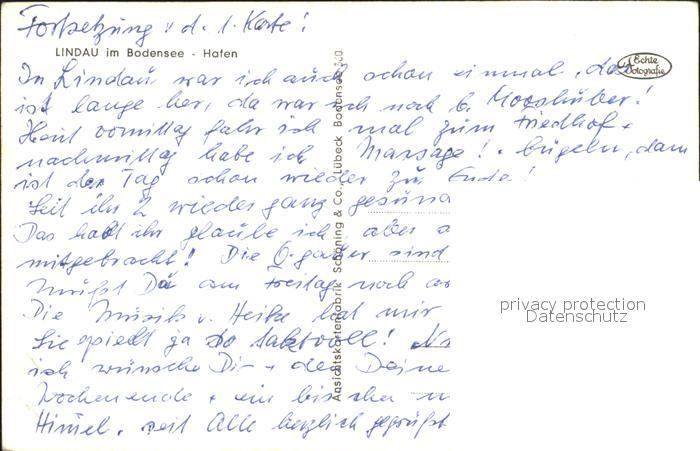 Fortsetzung v. d. 1. Karte!
LINDAU im Bodensee - Hafen
Echte Fotografie
In Lindau war ich auch schon einmal, das
ist lange her, da war ich noch b. Mooshuber!
Heut vormittag fahr ich mal zum Friedhof +
nachmittag habe ich Massage! + bügeln, dann
ist der Tag schon wieder zu Ende!
Seid ihr 2 wieder ganz gesund
Das habt ihr glaube ich aber a
mitgebracht! Die sind
mußt Du am Freitag noch
Die Musik v. Heike hat mir
Sie spielt ja so taktvoll!
ich wünsche Dir + den Deine
Wochenende + ein bischen
Himmel. seit Alle herzlich gegrüßt
Ansichtskartenfabrik Schöning & Co., Lübeck Bodensee
privacy protection
Datenschutz